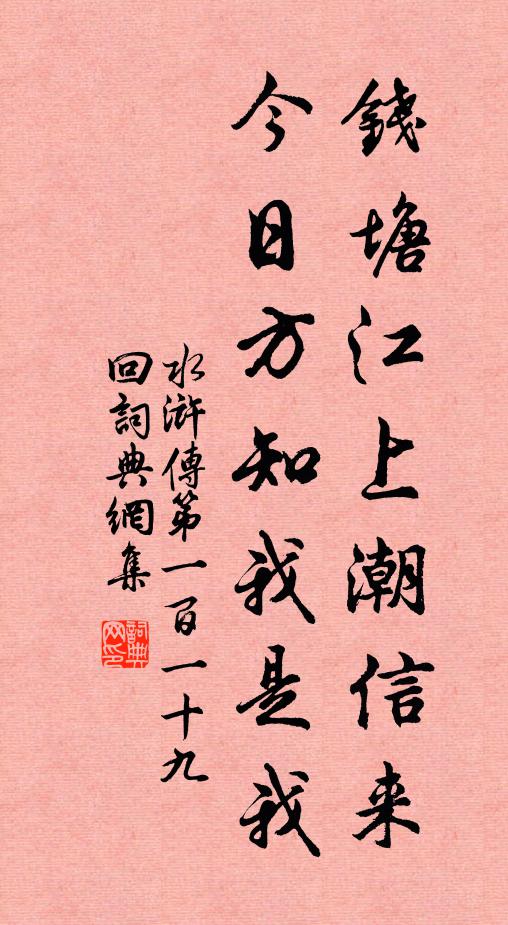 錢塘江上潮信来
今日方知我是我
水滸傳第一百一十九
回詞典網集
詞典
网印